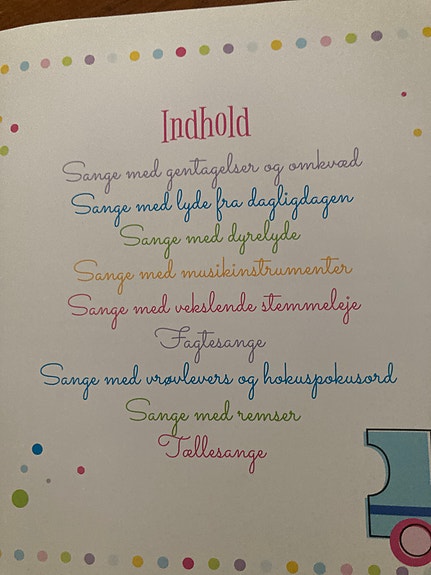 Indhold
Sange med gentagelser og omkvæd
Sange med lyde fra dagligdagen
Sange med dyrelyde
Sange med musikinstrumenter
Sange med vekslende stemmeleje
Fagtesange
Sange med vrøvlevers og hokuspokusord
Sange med remser
Tællesange